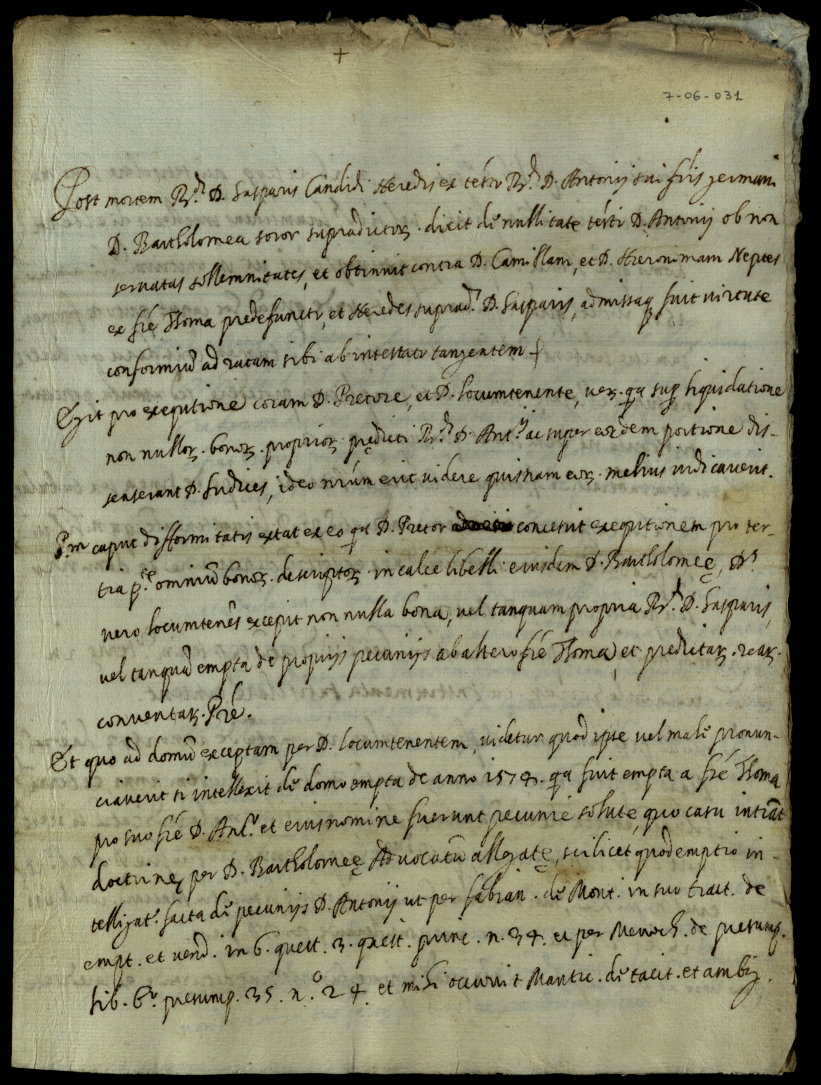 +
7-06-031
Post mortem R.di D. Gasparis Candidi Heredis ex testo R.di D. Antonij sui fr̃is germani
D. Bartholomea soror supradictorꝫ. dicit de nullitate testi D. Antonij ob non
servatas sollemnitates, et obtinuit contra D. Camillam, et D. Hieronimam Neptes
ex fr̃e Thoma predefuncto, et Heredes suprad.i D. Gasparis, admissaqꝫ fuit virtute
conformiũ ad ratam sibi ab intestato tangentem
Egit pro exequtione coram D. Pretore, et D. locumtenente, verꝫ. qa sup liquidatione
non nullorꝫ. bonorꝫ. propriorꝫ. prędicti R.di D. Ant.ij ac super eordem portione dis-
senserunt D. Judices, ideo nr̃um erit videre quisnam eorꝫ. melius iudicaverit.
P.m caput difformitatis extat ex eo qa D. Pretor concessit exequtionem pro ter-
tia p.te omniũ bonorꝫ. descriptorꝫ. in calce libelli eiusdem D. Bartholomeę, D.s
vero locumteñs excepit non nulla bona, vel tanquam propria R.di D. Gasparis,
vel tanquã empta de proprijs pecunijs ab altero fr̃e Thoma, et predictarꝫ. rearꝫ.
conventarꝫ. Pr̃e.
Et quo ad domũ exceptam per D. locumtenentem, videtur quod ipse vel male pronun-
ciaverit si intellexit de domo empta de anno 1574. qa fuit empta a fr̃e Thoma
pro suo fr̃e D. Ant.o et eius nomine fuerunt pecunie solutę, quo casu intrãt
doctrinę per D. Bartholomeę Advocatũ allegatę, scilicet quod emptio in-
telligat.r facta de pecunijs D. Antonij ut per fabian. de Mont. in suo tract. de
empt. et vend. in 6. quest. 3. quest. princ. n. 34. et per Menoch. de presump.
lib. 6.o presump. 35. n.o 24. et mihi occurrit Mantic. de tacit. et ambig.